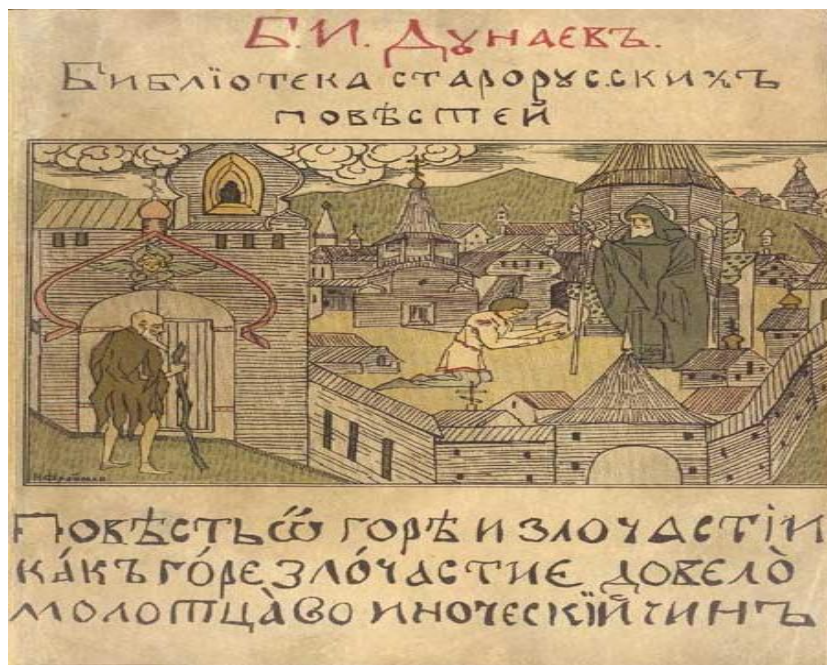 Б. И. Дꙋнаєвъ.
Библїотека старорусскихъ
повѣстей
Повѣсть ѽ горѣ и злочастїи
ка́къ го́ре зло́частиє довело̀
молотца̀ во иноческїй чинъ